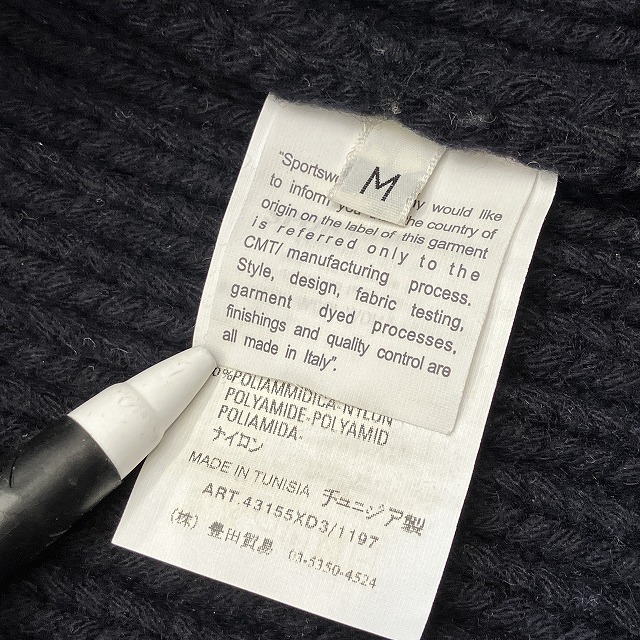 M
"Sportsw y would like
to inform you the country of
origin on the label of this garment
is referred only to the
CMT/ manufacturing process.
Style, design, fabric testing,
garment dyed processes,
finishings and quality control are
all made in Italy".
0%POLIAMMIDICA-NYLON
POLYAMIDE-POLYAMID
POLIAMIDA-
ナイロン
MADE IN TUNISIA チユニジア製
ART.43155XD3/1197
(株) 豊田貿易 03-5350-4524